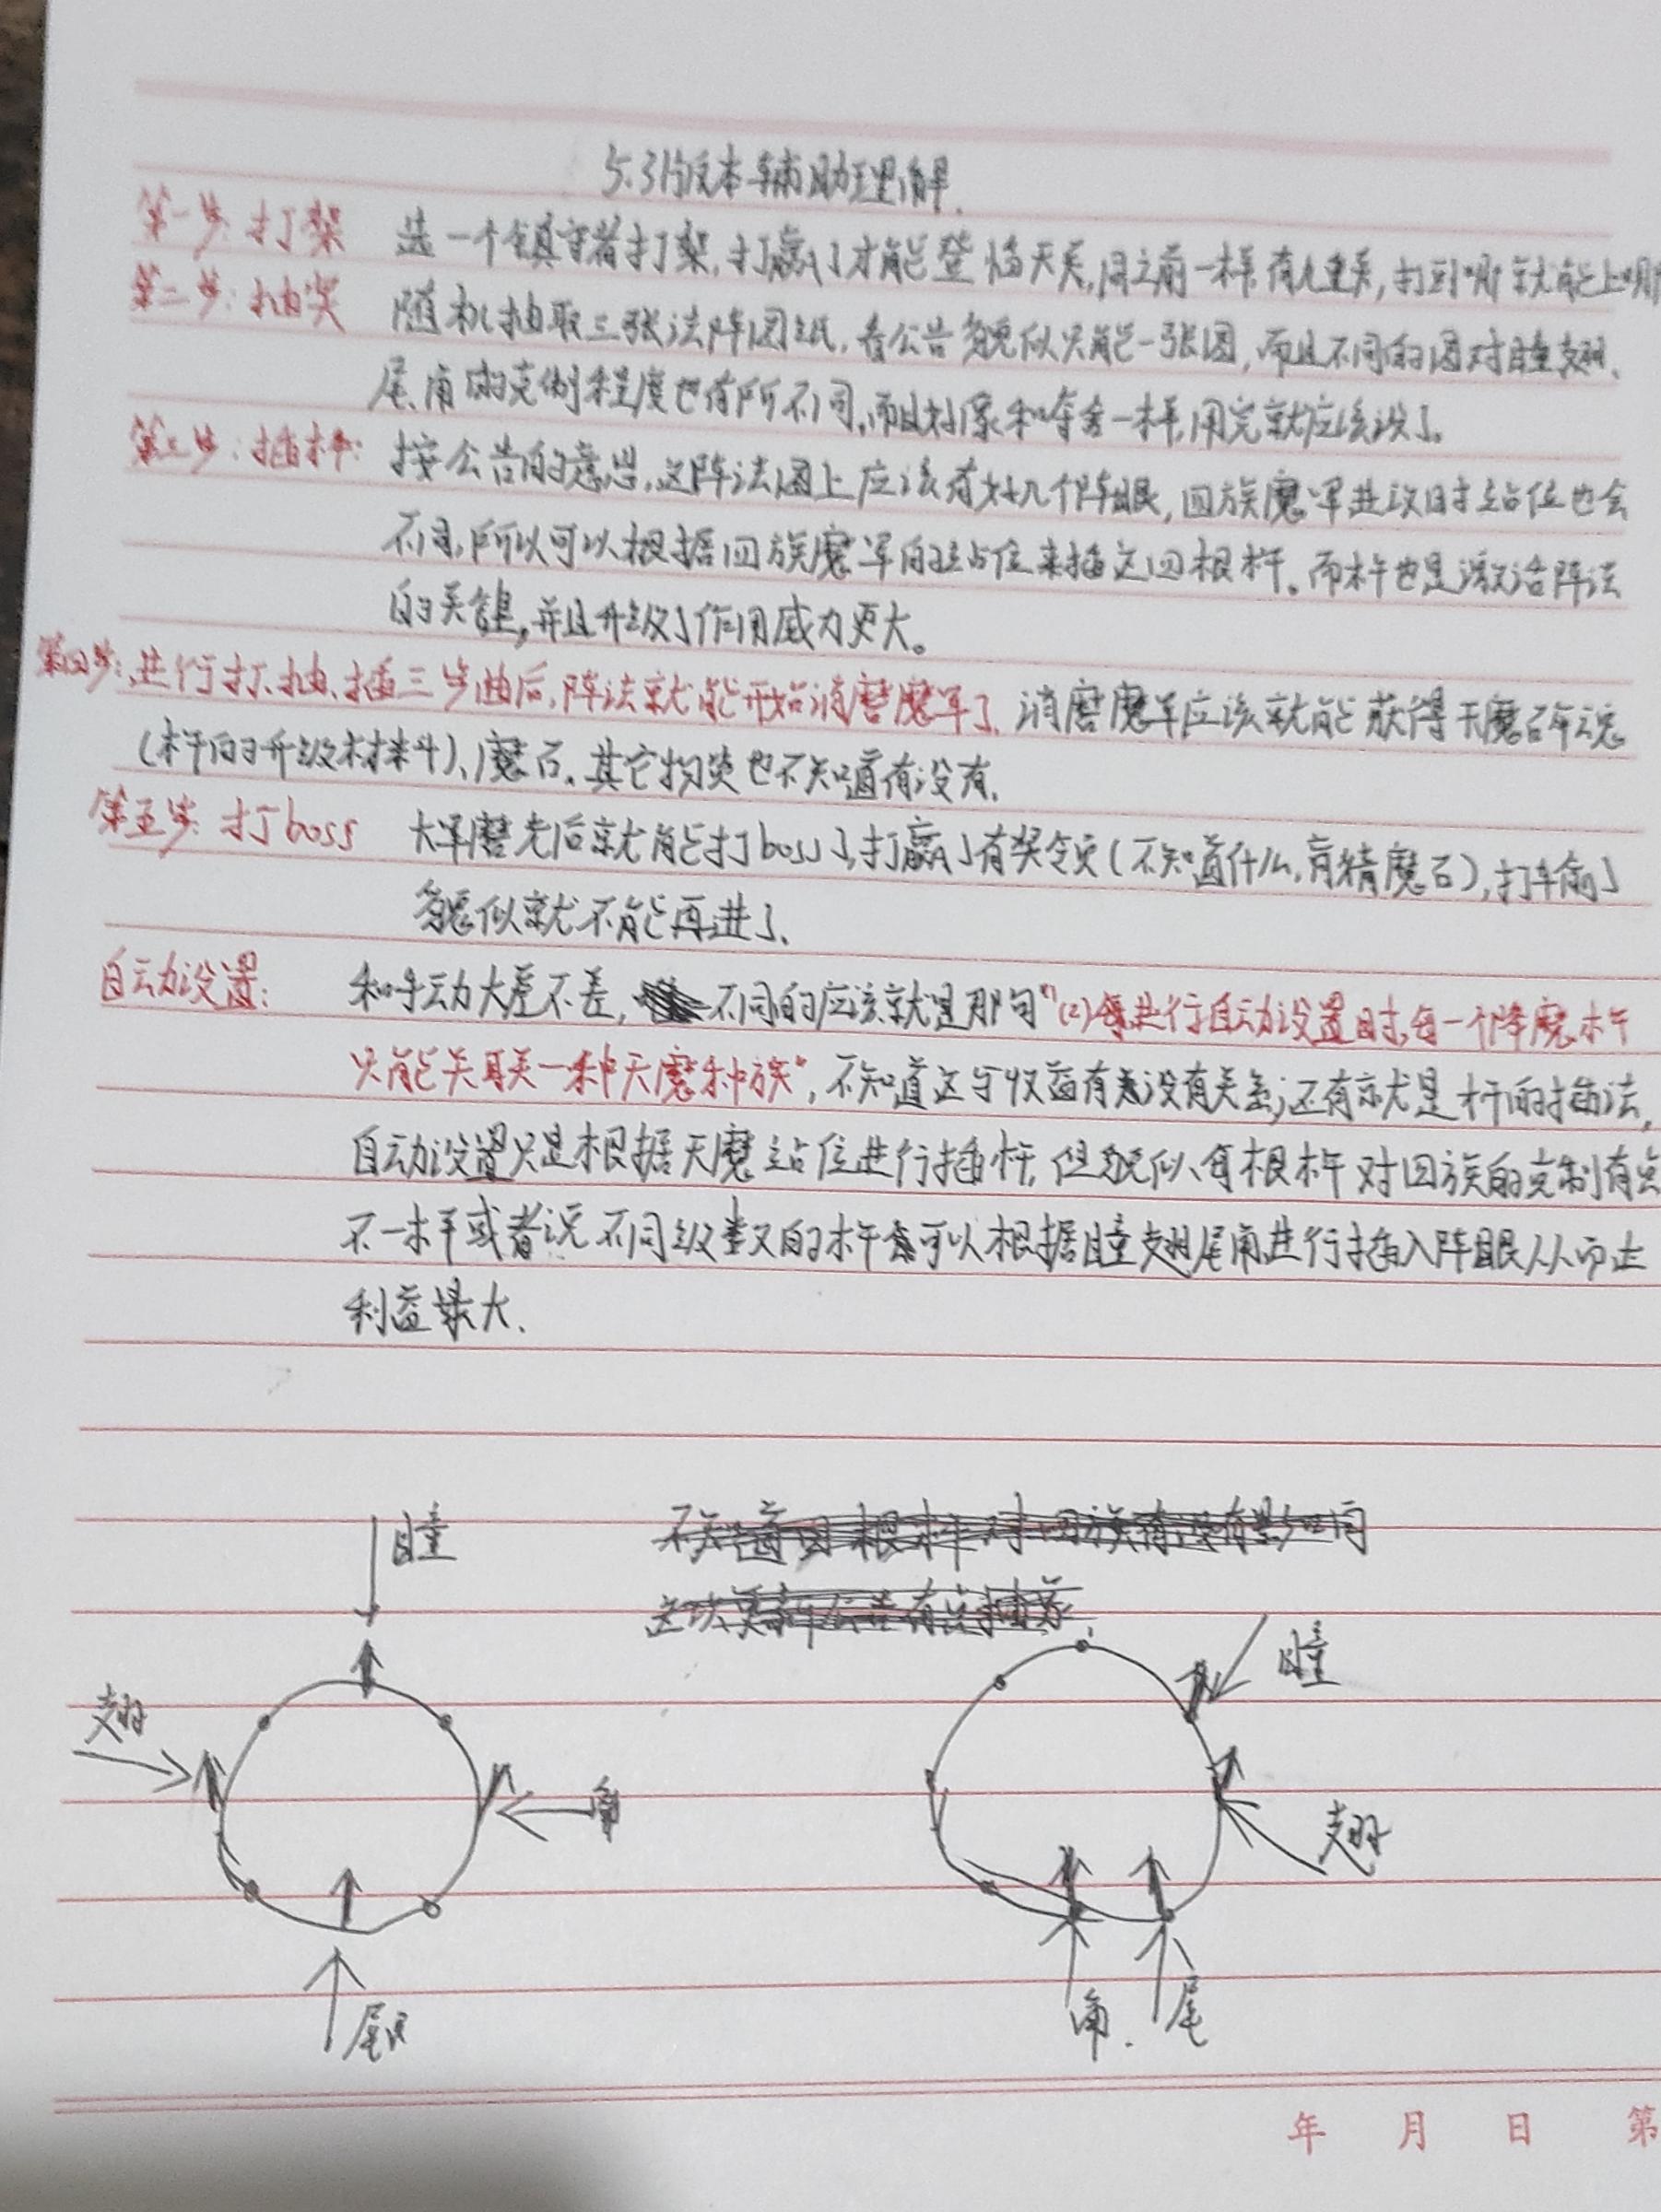 5.31版本辅助理解.
第一步:打架 选一个镇守者打架,打赢了才能登临天关,同之前一样有九重关,打到哪就能上哪
第二步:抽奖 随机抽取三张法阵图纸,看公告貌似只能一张图,而且不同的图对瞳翅、
尾、角的克制程度也有所不同,而且好像和夺舍一样,用完就应该没了。
第三步:插杵: 按公告的意思,这阵法图上应该有好几个阵眼,四族魔军进攻时站位也会
不同,所以可以根据四族魔军的站位来插这四根杵。而杵也是激活阵法
的关键,并且升级了作用威力更大。
第四步:进行打、抽、插三步曲后,阵法就能开始消磨魔军了.消磨魔军应该就能获得天魔碎魂
(杵的升级材料)、魔石。其它物资也不知道有没有.
第五步:打boss 大军磨光后就能打boss了,打赢了有奖领(不知道什么,肯精魔石),打输了
貌似就不能再进了.
自动设置: 和手动大差不差,不同的应该就是那句"(2)进行自动设置时,每一个降魔杵
只能关联一种天魔种族",不知道这与收益有没有关系;还有就是杵的插法,
自动设置只是根据天魔站位进行插杵,但貌似、每根杵对四族的克制有点
不一样或者说不同级数的杵可以根据瞳翅尾角进行插入阵眼从而达
利益最大.
瞳
不知道四根杵对四族有没有影响
这次更新公告有点抽象.
瞳
翅
角
翅
尾
角.
尾
年 月 日 第